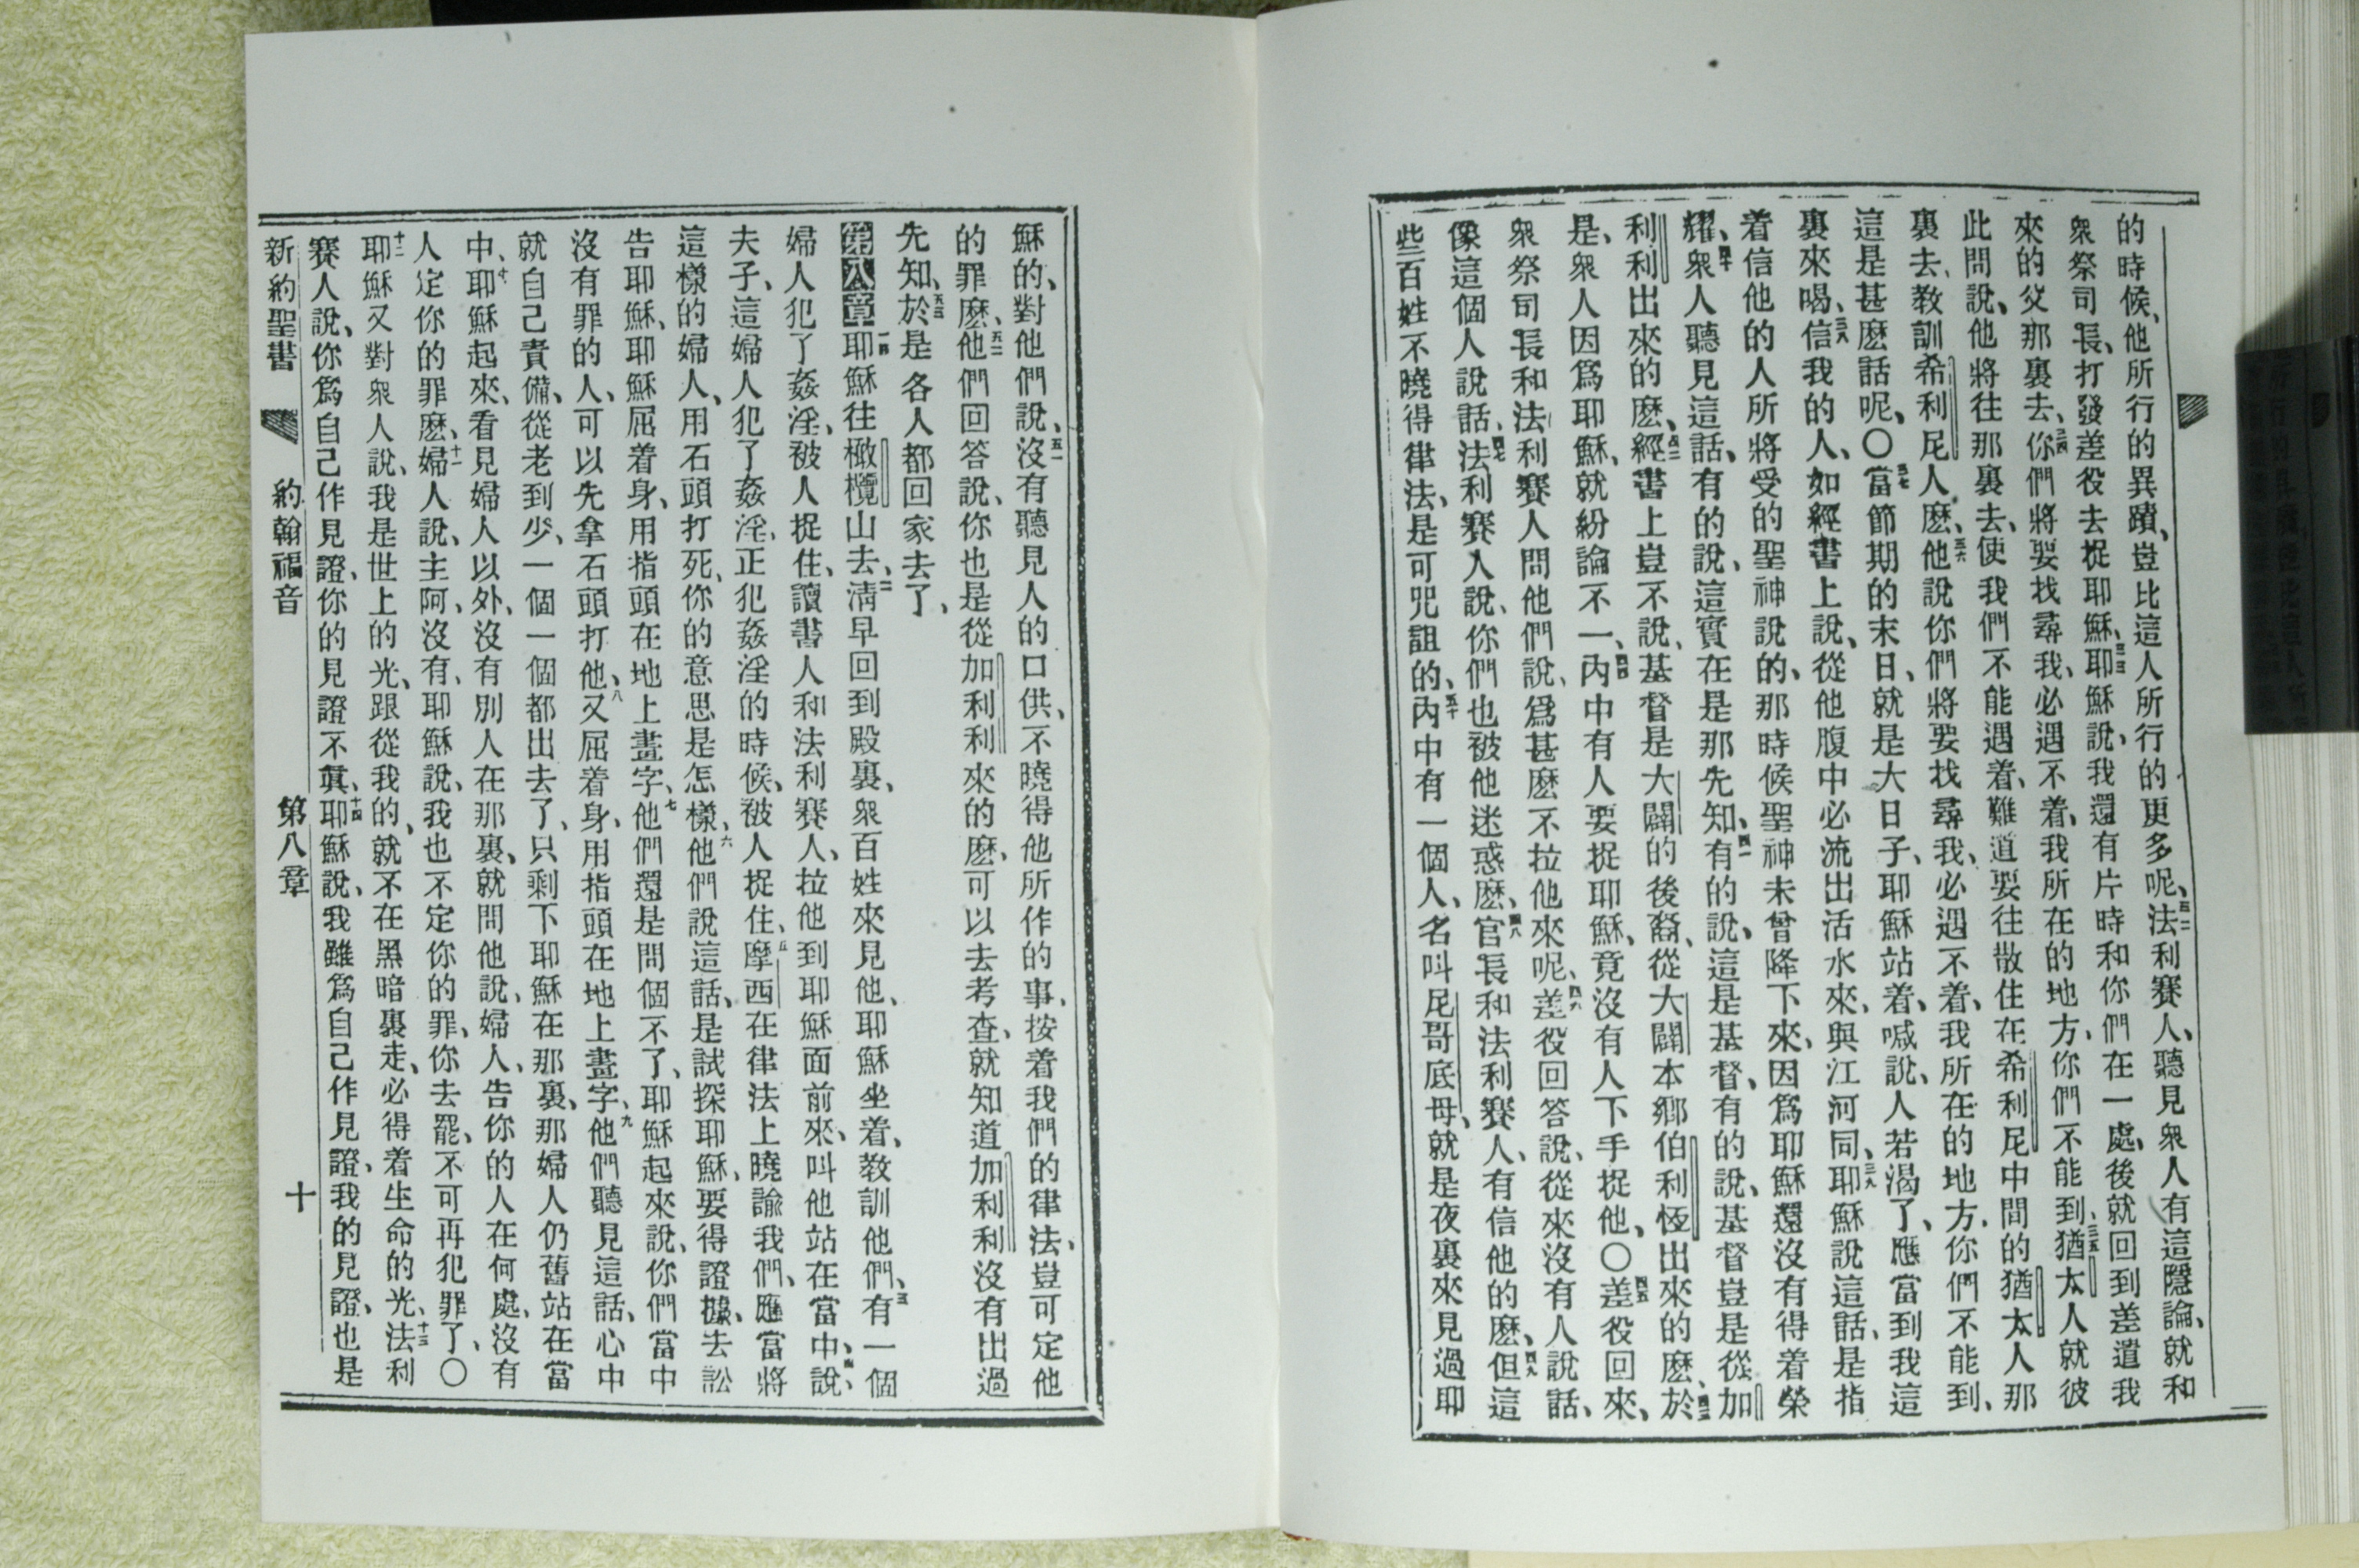 的時候、他所行的異蹟、豈比這人所行的更多呢、三二法利賽人、聽見衆人有這隱論、就和
衆祭司長、打發差役去捉耶穌、三三耶穌說、我還有片時和你們在一處、後就回到差遣我
來的父那裏去、三四你們將要找尋我、必遇不着、我所在的地方、你們不能到、三五猶太人就彼
此問說、他將往那裏去、使我們不能遇着、難道要往散住在希利尼中間的猶太人那
裏去、教訓希利尼人麽、三六他說你們將要找尋我、必遇不着、我所在的地方、你們不能到、
這是甚麽話呢、〇三七當節期的末日、就是大日子、耶穌站着、喊說、人若渴了、應當到我這
裏來喝、三八信我的人、如經書上說、從他腹中必流出活水來、與江河同、三九耶穌說這話、是指
着信他的人所將受的聖神說的、那時候聖神未曾降下來、因爲耶穌還沒有得着榮
耀、四十衆人聽見這話、有的說、這實在是那先知、四一有的說、這是基督、有的說、基督豈是從加
利利出來的麽、四二經書上豈不說、基督是大闢的後裔、從大闢本鄉伯利恆出來的麽、四三於
是、衆人因爲耶穌、就紛論不一、四四內中有人要捉耶穌、竟沒有人下手捉他、〇四五差役回來、
衆祭司長和法利賽人問他們說、爲甚麽不拉他來呢、四六差役回答說、從來沒有人說話、
像這個人說話、四七法利賽人說、你們也被他迷惑麽、四八官長和法利賽人、有信他的麽、四九但這
些百姓不曉得律法、是可咒詛的、五十內中有一個人、名叫尼哥底母、就是夜裏來見過耶
穌的、對他們說、五一沒有聽見人的口供、不曉得他所作的事、按着我們的律法、豈可定他
的罪麽、五二他們回答說、你也是從加利利來的麽、可以去考查、就知道加利利沒有出過
先知、五三於是各人都回家去了、
第八章一耶穌往橄欖山去、二淸早回到殿裏、衆百姓來見他、耶穌坐着、教訓他們、三有一個
婦人犯了姦淫、被人捉住、讀書人和法利賽人、拉他到耶穌面前來、叫他站在當中、四說、
夫子、這婦人犯了姦淫、正犯姦淫的時候、被人捉住、五摩西在律法上曉諭我們、應當將
這樣的婦人、用石頭打死、你的意思是怎樣、六他們說這話、是試探耶穌、要得證據去訟
告耶穌、耶穌屈着身、用指頭在地上畫字、七他們還是問個不了、耶穌起來說、你們當中
沒有罪的人、可以先拿石頭打他、八又屈着身、用指頭在地上畫字、九他們聽見這話、心中
就自己責備、從老到少、一個一個都出去了、只剩下耶穌在那裏、那婦人仍舊站在當
中、十耶穌起來、看見婦人以外、沒有別人在那裏、就問他說、婦人、告你的人在何處、沒有
人定你的罪麽、十一婦人說、主阿、沒有、耶穌說、我也不定你的罪、你去罷、不可再犯罪了、〇
十二耶穌又對衆人說、我是世上的光、跟從我的、就不在黑暗裏走、必得着生命的光、十三法利
賽人說、你爲自己作見證、你的見證不眞、十四耶穌說、我雖爲自己作見證、我的見證、也是
新約聖書 約翰福音 第八章 十